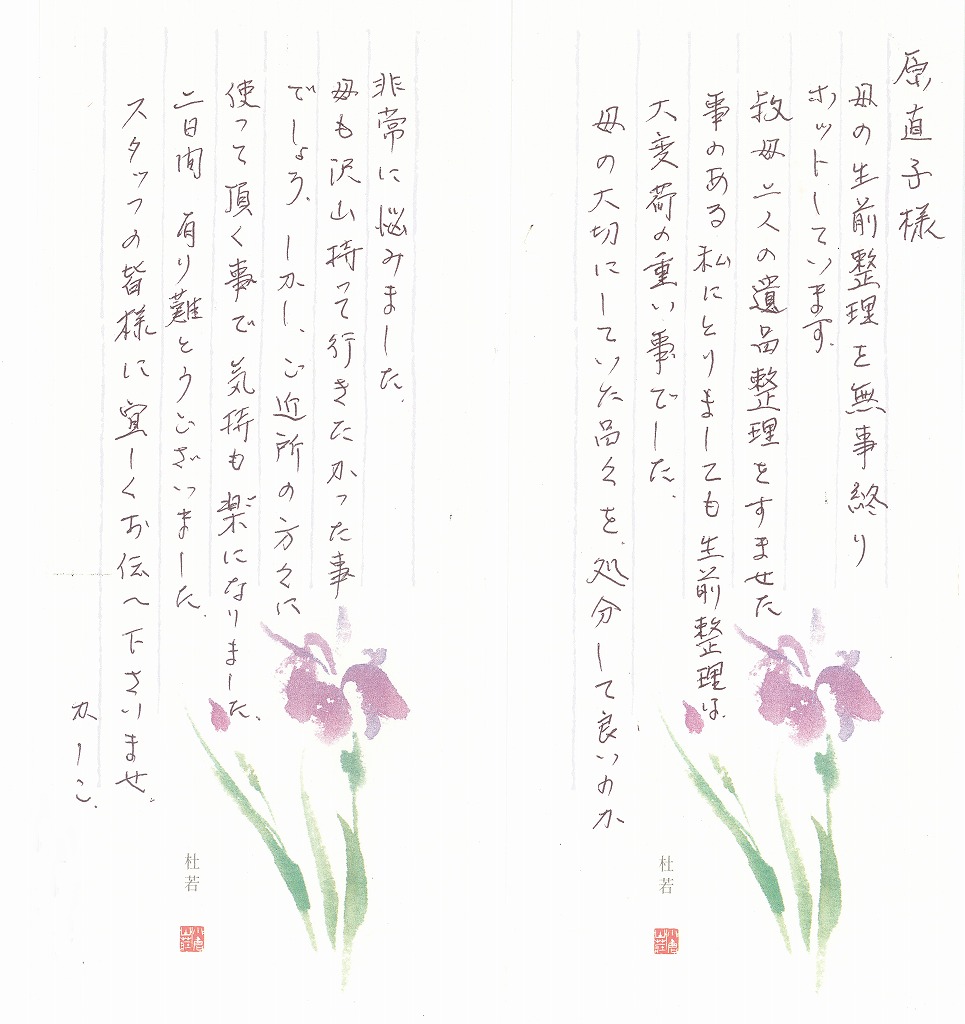 原直子様
母の生前整理を無事終り
ホットしています。
叔母二人の遺品整理をすませた
事のある私にとりましても生前整理は
大変荷の重い事でした。
母の大切にしていた品々を、処分して良いのか
杜若
非常に悩みました。
母も沢山持って行きたかった事
でしょう。しかし、ご近所の方々に
使って頂く事で気持も楽になりました。
二日間 有り難とうございました。
スタッフの皆様に宜しくお伝へ下さいませ。
かしこ。
杜若